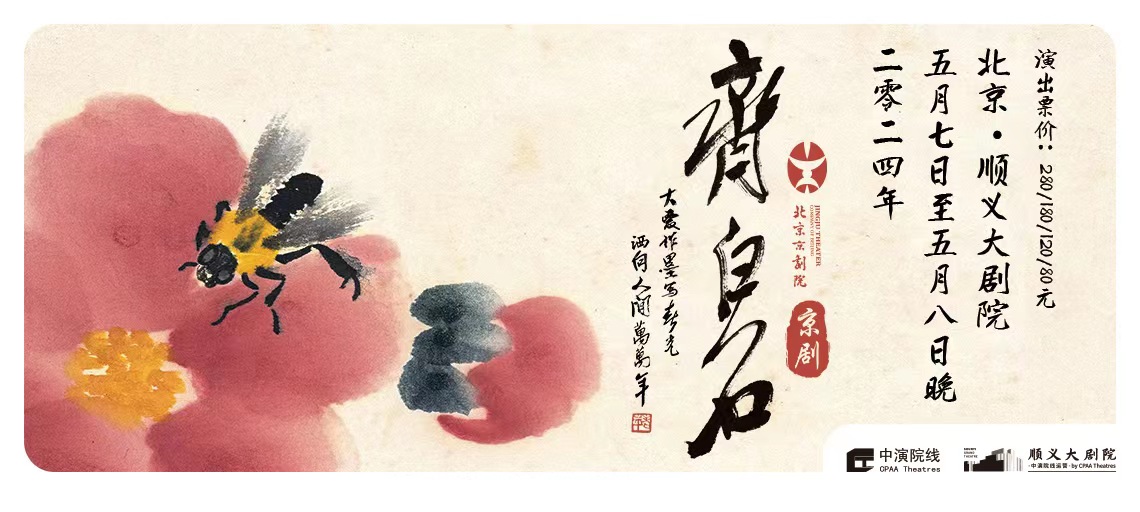 演出票价：280/180/120/80元
北京·顺义大剧院
五月七日至五月八日晚
二零二四年
JINGJU THEATER
COMPANY OF BEIJING
北京京剧院
京剧
齊白石
大爱作墨写春光
洒向人间萬萬年
中演院线
CPAA Theatres
SHUNYI
GRAND
THEATRE
顺义大剧院
·中演院线运营·by CPAA Theatres